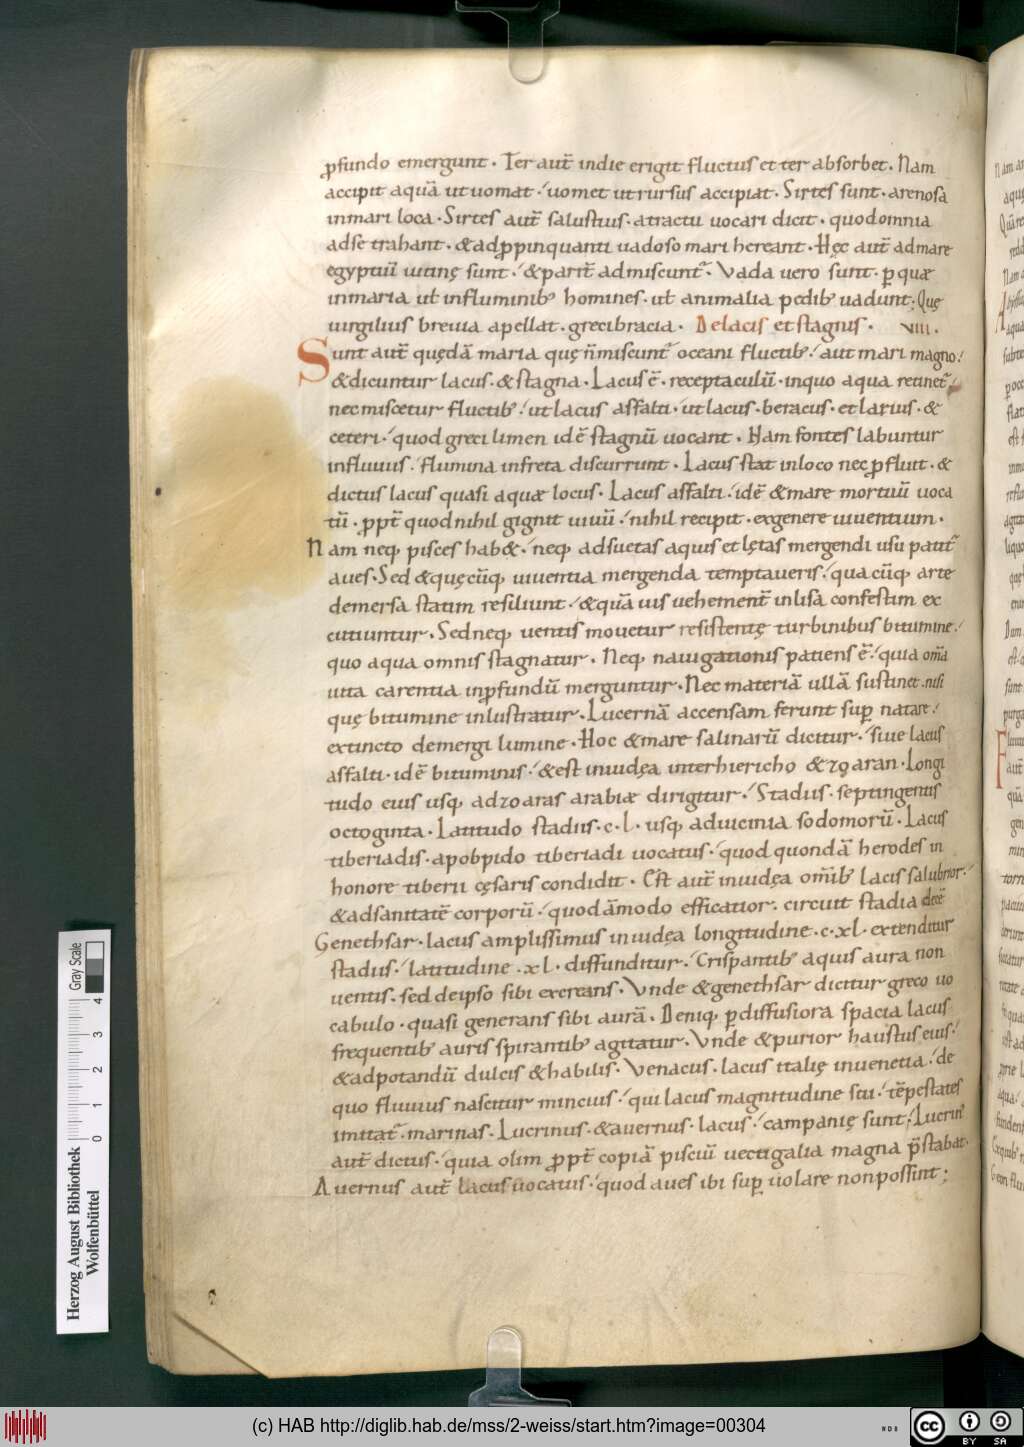 ꝓfundo emergunt. Ter aut̄ indie erigit fluctus et ter absorbet. Nam
accipit aquā ut uomat. uomet ut rursus accipiat. Sirtes sunt. arenosa
inmari loca. Sirtes aut̄ salustius. atractu uocari dicit. quodomnia
adse trahant. & adꝓpinquanti uadoso mari hereant. Hęc aut̄ admare
egyptiū iutinę sunt. & parit̄ admiscunt̄. Vada uero sunt. ꝑ quæ
inmaria ut̄ influminib; homines. ut̄ animalia pedib; uadunt; Quę
uirgilius breuia apellat. greci bracia. De lacis et stagnis. VIII.
Sunt aut̄ quędā maria quę n̄ miscunt̄ oceani fluctib; aut mari magno.
& dicuntur lacus. & stagna. Lacus ē. receptaculū. inquo aqua retinet̄
nec miscetur fluctib; ut lacus asfalti. ut lacus. beracus. et larius. &
ceteri. quod greci limen idē stagnū uocant. Nam fontes labuntur
influuius. flumina infreta discurrunt. Lacus stat inloco nec ꝓfluit. &
dictus lacus quasi aquæ locus. Lacus asfalti. idē & mare mortuū uoca
tū. ꝓpt̄ quod nihil gignit uiuū. nihil recipit. exgenere uiuentium.
Nam neq; pisces hab&. neq; adsuetas aquis et lętas mergendi usu patit̄
aues. Sed & quęcūq; uiuentia mergenda temptaueris. qua cūq; arte
demersa statim resiliunt. & quā uis uehement̄ inlisa confestim ex
cutiuntur. Sed neq; uentis mouetur resistentę turbinibus bitumine.
quo aqua omnis stagnatur. Neq; nauigationis patiens ē. quia om̄ia
uita carentia inꝓfundū merguntur. Nec materiā ullā sustinet. nisi
quę bitumine inlustratur. Lucernā accensam ferunt suꝑ natare.
extincto demergi lumine. Hoc & mare salinarū dicitur. siue lacus
asfalti. idē bituminis. & est iniudęa interhiericho & zoaran. Longi
tudo eius usq; adzoaras arabiæ dirigitur. Stadiis. septingentis
octoginta. Latitudo stadiis. c. l. usq; aduicinia sodomorū. Lacus
tiberiadis. apobpido tiberiadi uocatus. quod quondā herodes in
honore tiberii cęsaris condidit. Est aut̄ iniudęa om̄ib; lacis salubrior.
& adsanitatē corporū. quodāmodo efficatior. circuit stadia
Genethsar. lacus amplissimus iniudęa longitudine. c. xl. extenditur
stadiis. latitudine. xl. diffunditur. Crispantib; aquis aura non
uentis. sed deipso sibi excreans. Vnde & genethsar dicitur greco uo
cabulo. quasi generans sibi aurā. Deniq; ꝑ diffusiora spacia lacus
frequentib; auris spirantib; agitatur. Vnde & purior haustus eius.
& adpotandū dulcis & habilis. Venacus. lacus italię inuenetia. de
quo fluuius nascitur mincius. qui lacus magnitudine sui. tēpestates
imitat̄. marinas. Lucrinus. & auernus. lacus. campanię sunt; Lucrin;
aut̄ dictus. quia olim ꝓpt̄ copiā pisciū uectigalia magna p̄stabat.
Auernus aut̄ lacus uocatus. quod aues ibi suꝑ uolare nonpossint;
Herzog August Bibliothek
Wolfenbüttel
0 1 2 3 4 Gray Scale
(c) HAB http://diglib.hab.de/mss/2-weiss/start.htm?image=00304
cc BY SA